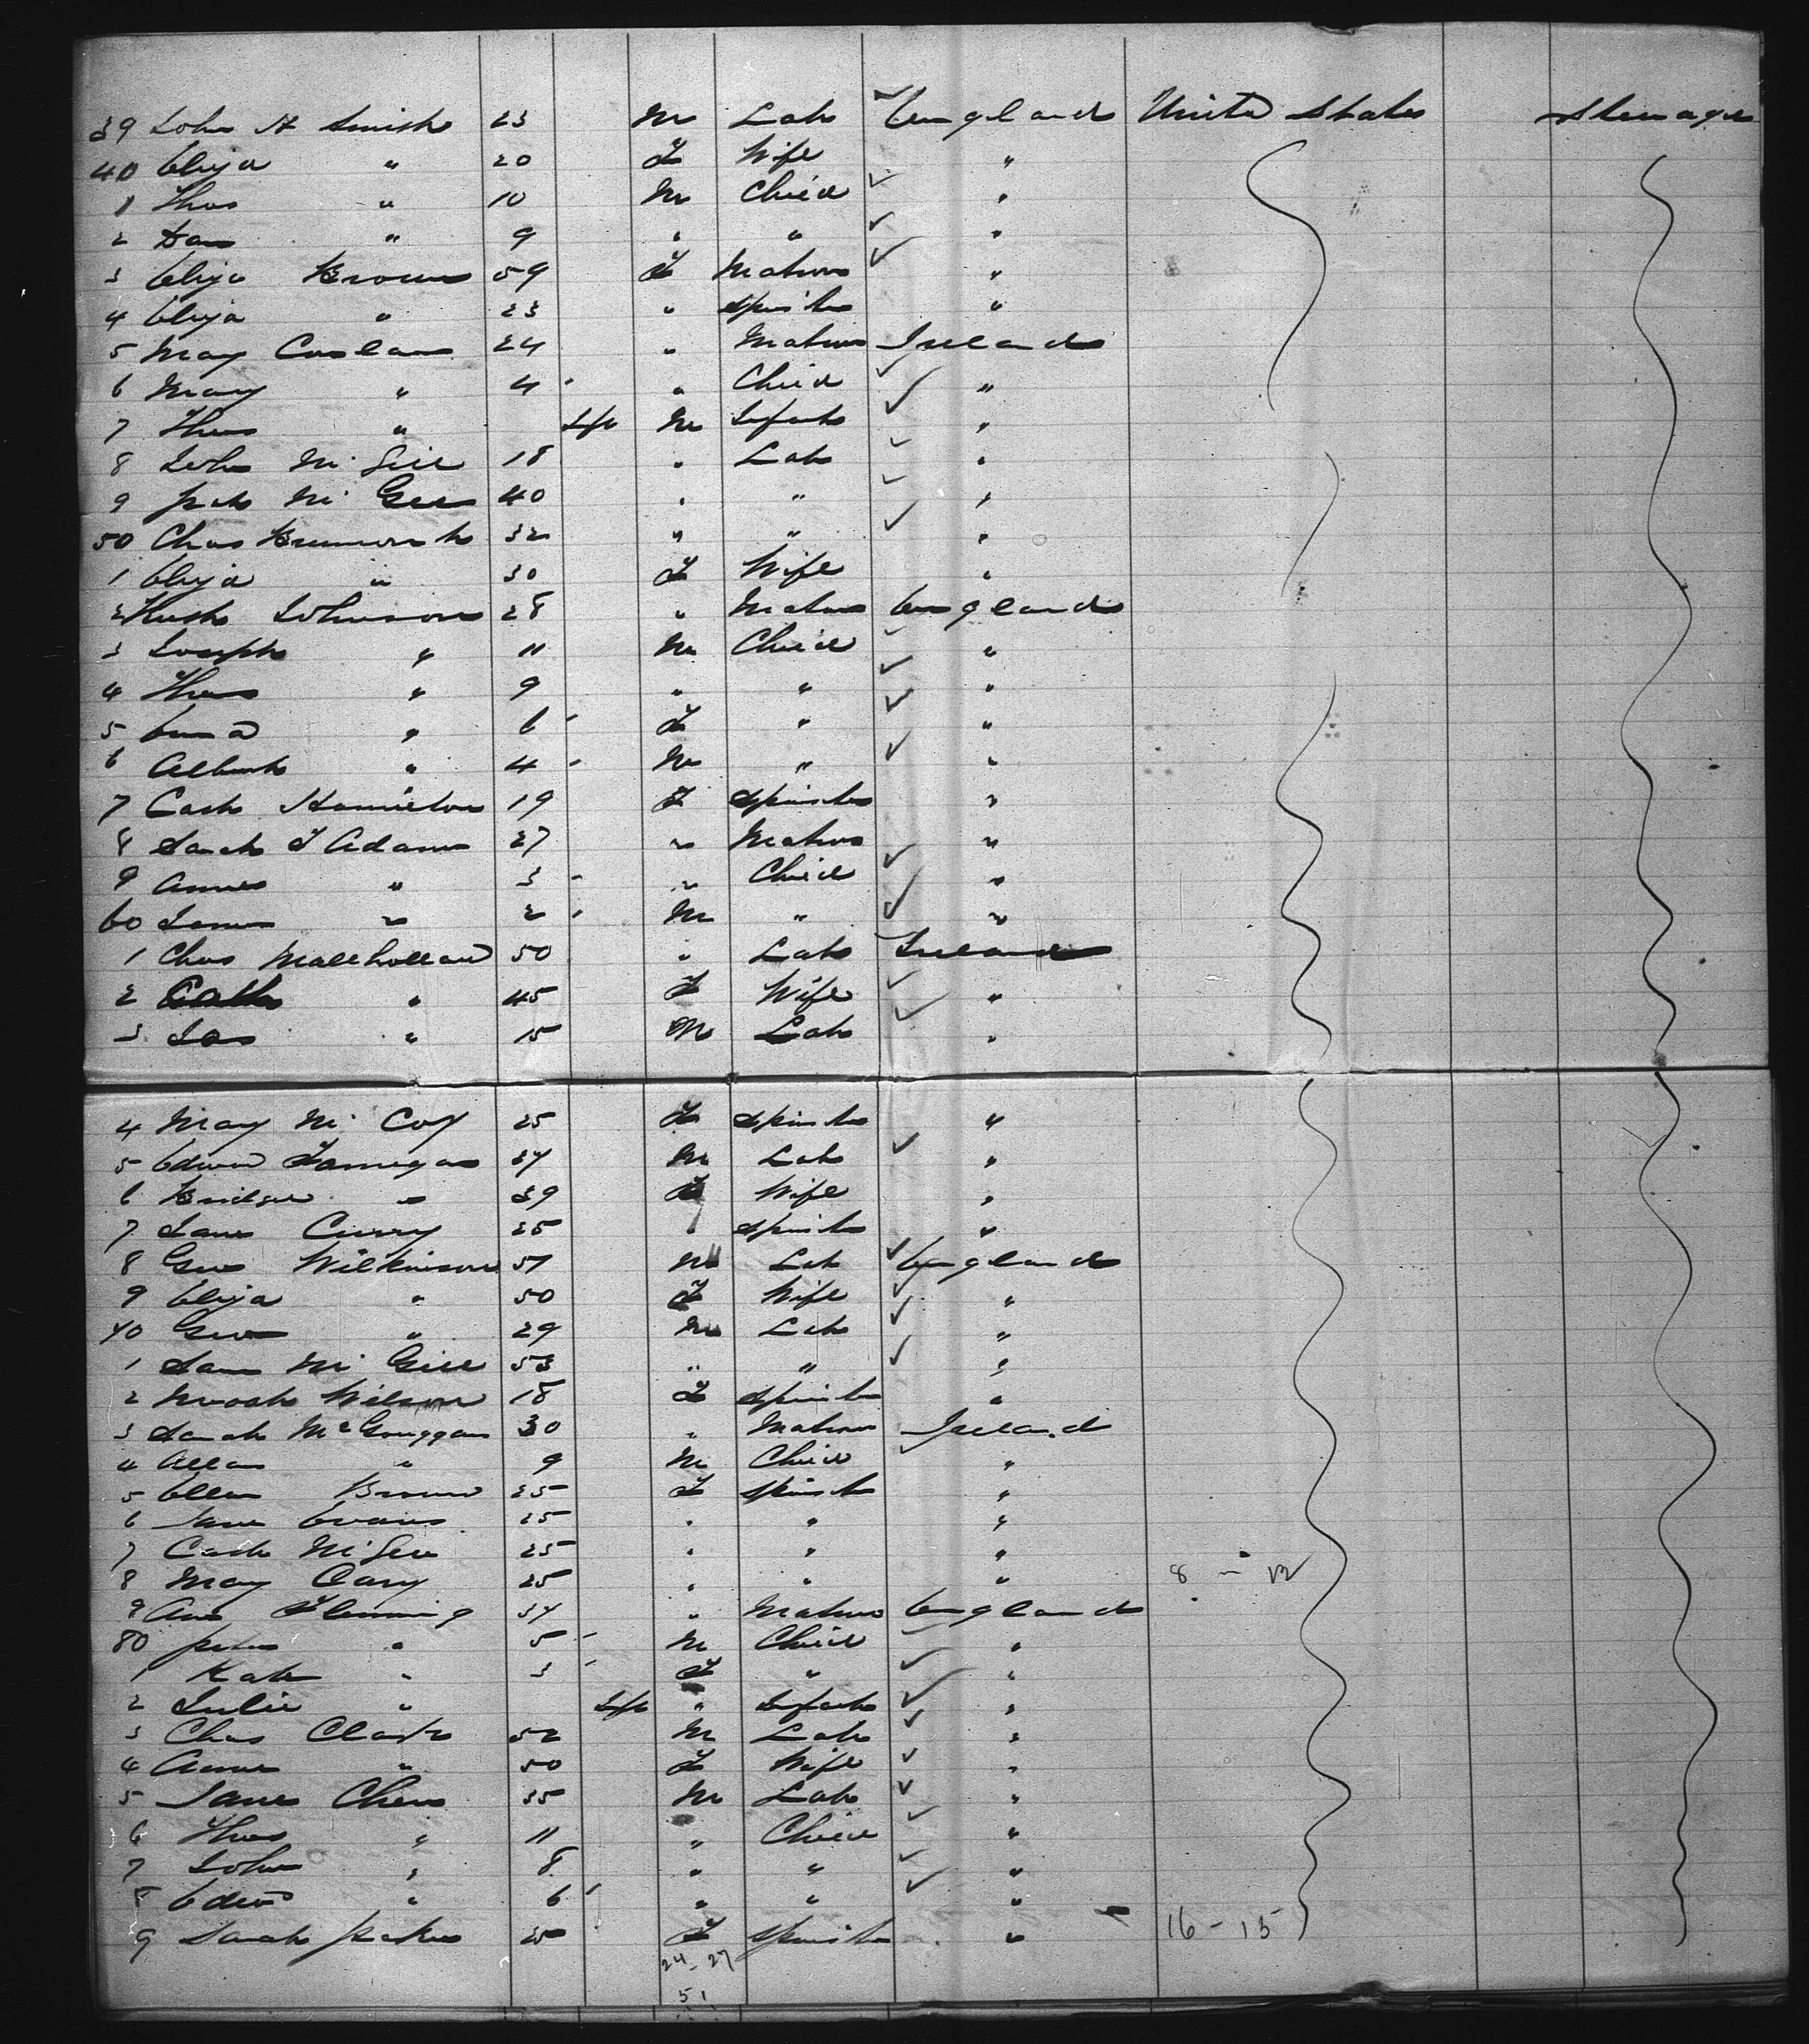 39 John H Smith 23 M Lab England United States Steerage
40 Eliza " 20 F Wife "
1 Thos " 10 M Child "
2 Sam " 9 " " "
3 Eliza Brown 59 F Matron "
4 Eliza " 23 " Spinster "
5 Mary 24 " Matron Ireland
6 Mary " 4 " Child "
7 Thos " Inft M Infant "
8 John Mc Gill 18 " Lab "
9 Patk Mc Gee 40 " " "
50 Chas 32 " " "
1 Eliza " 30 F Wife "
2 Johnson 28 " Matron England
3 Joseph " 11 M Child "
4 Thos " 9 " " "
5 " 6 F " "
6 Albert " 4 M " "
7 Cath Hamilton 19 F Spinster "
8 Sarah J Adams 27 " Matron "
9 Annie " 3 " Child "
60 James " 2 M " "
1 Chas Mallholland 50 " Lab Ireland
2 Cath " 45 F Wife "
3 Jas " 15 M Lab "
4 Mary Mc Coy 25 F Spinster "
5 Edward 37 M Lab "
6 Bridget " 39 F Wife "
7 Curry 25 " Spinster "
8 Geo Wilkinson 57 M Lab England
9 Eliza " 50 F Wife "
70 Geo " 29 M Lab "
1 Sam Mc Gill 53 " " "
2 Wilson 18 F Spinster "
3 Sarah Mc Gouggan 30 " Matron Ireland
4 Allan " 9 M Child "
5 Ellen Brown 25 F Spinster "
6 Jane Evans 25 " " "
7 Cath 25 " " "
8 Mary Cary 25 " " " 8 - 12
9 Ann Fleming 34 " Matron England
80 Peter " 5 M Child "
1 Kate " 3 F " "
2 Julie " Inft " Infant "
3 Chas Clark 52 M Lab "
4 Annie " 50 F Wife "
5 James 35 M Lab "
6 Thos " 11 " Child "
7 John " 8 " " "
8 Edwd " 6 " " "
9 Sarah Parker 25 F Spinster " 16 - 15
24 - 27
51